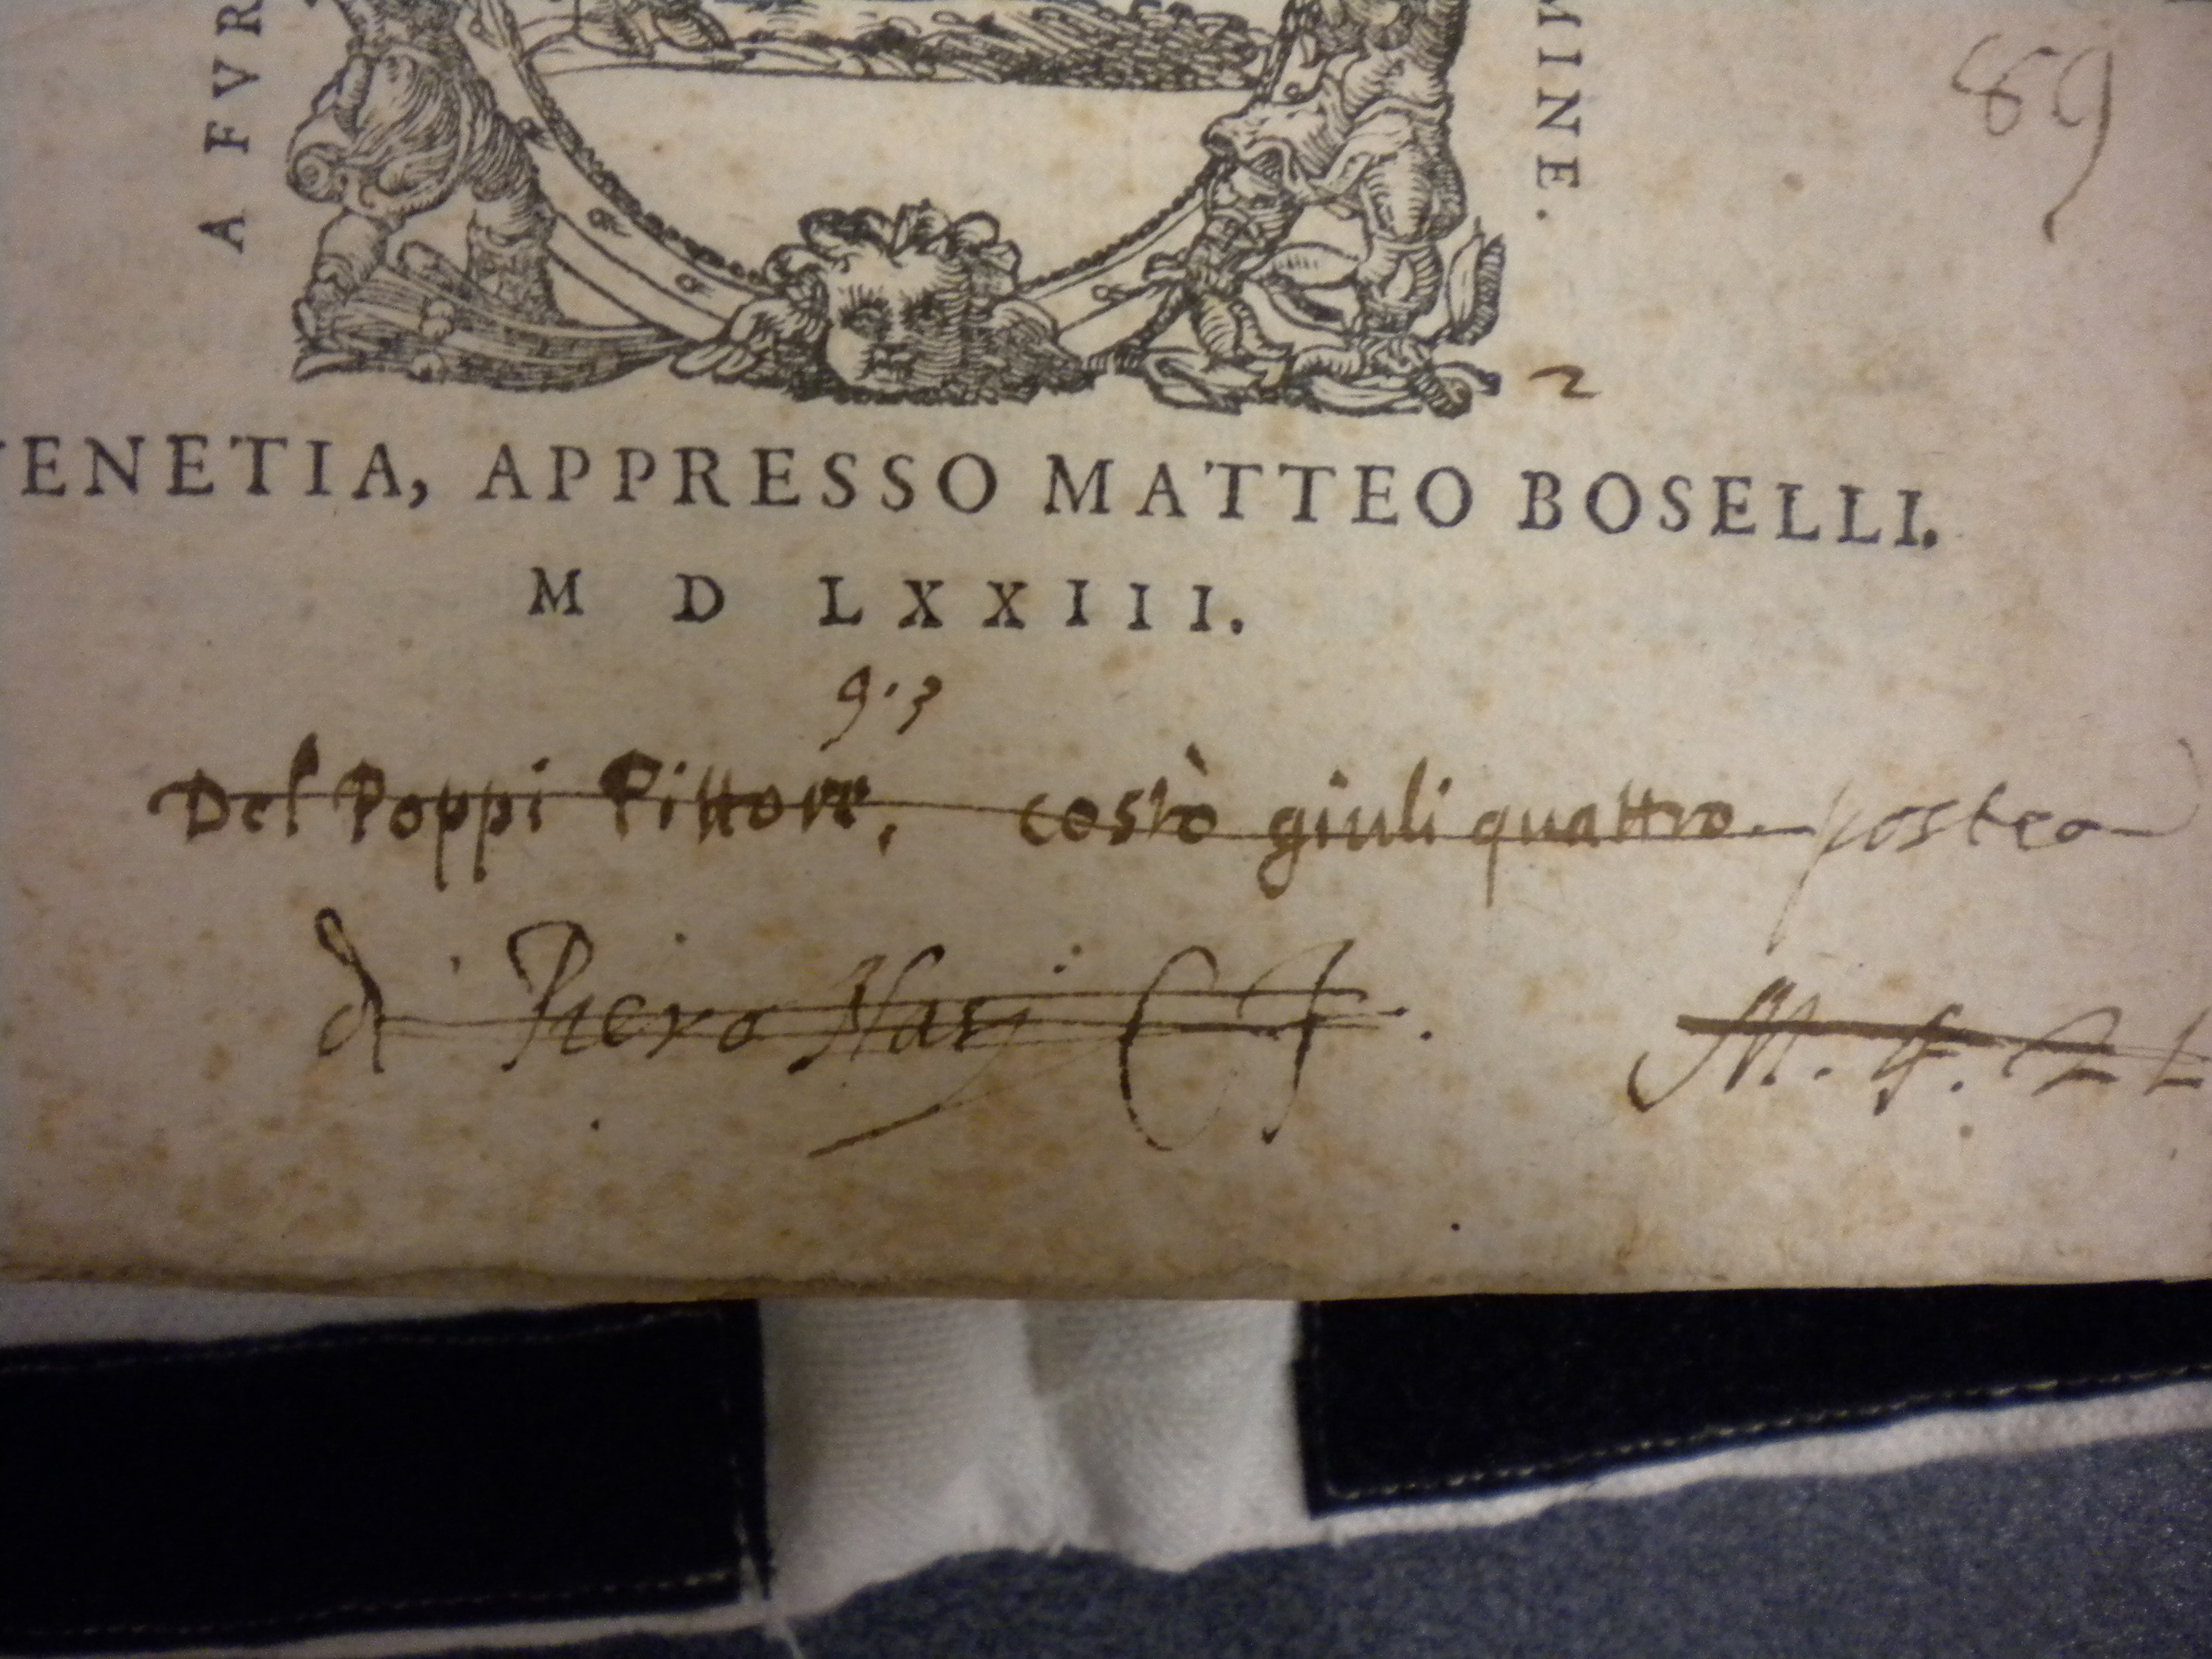 A FVR
MINE.
89
2
VENETIA, APPRESSO MATTEO BOSELLI.
M D LXXIII.
9.3
Del Poppi Pittore, costò giuli quattro. postea
di Piero Nasj
M. 4. 2